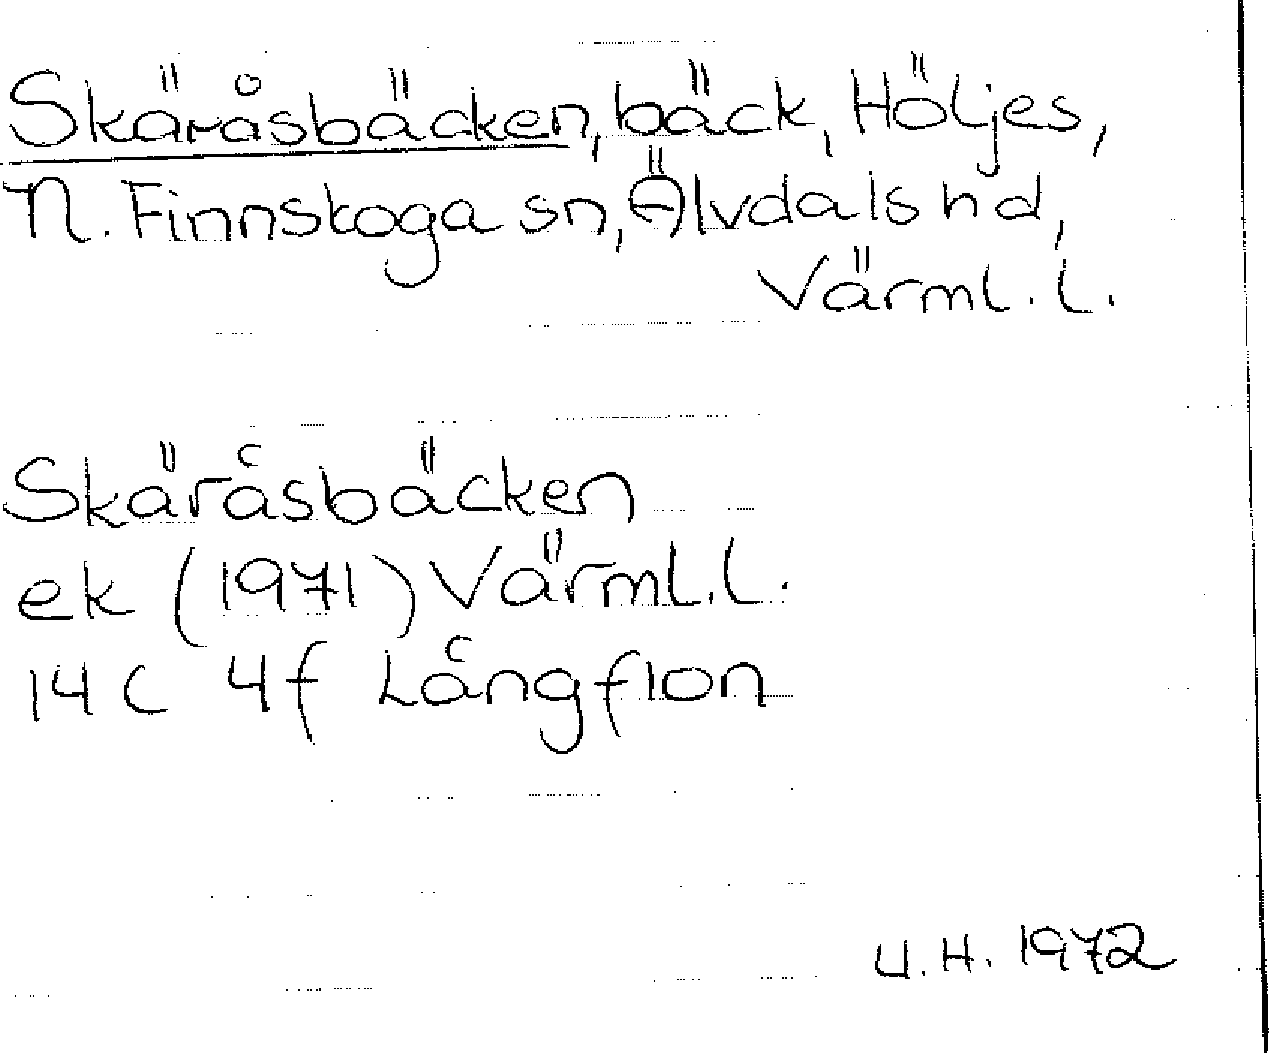 Skäråsbäcken, bäck, Höljes,
N. Finnskoga sn, Älvdals hd,
Värml. l.
Skäråsbäcken
ek (1971) Värml. l.
14 C 4f Långflon
U.H. 1972